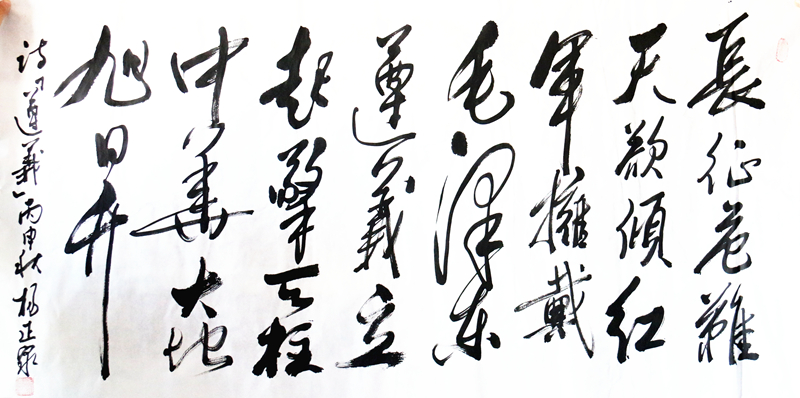 長征危難
天欲傾紅
軍擁戴
毛澤东
遵義立
起擎天柱
中華大地
旭日升
詩「遵義」丙申秋杨正